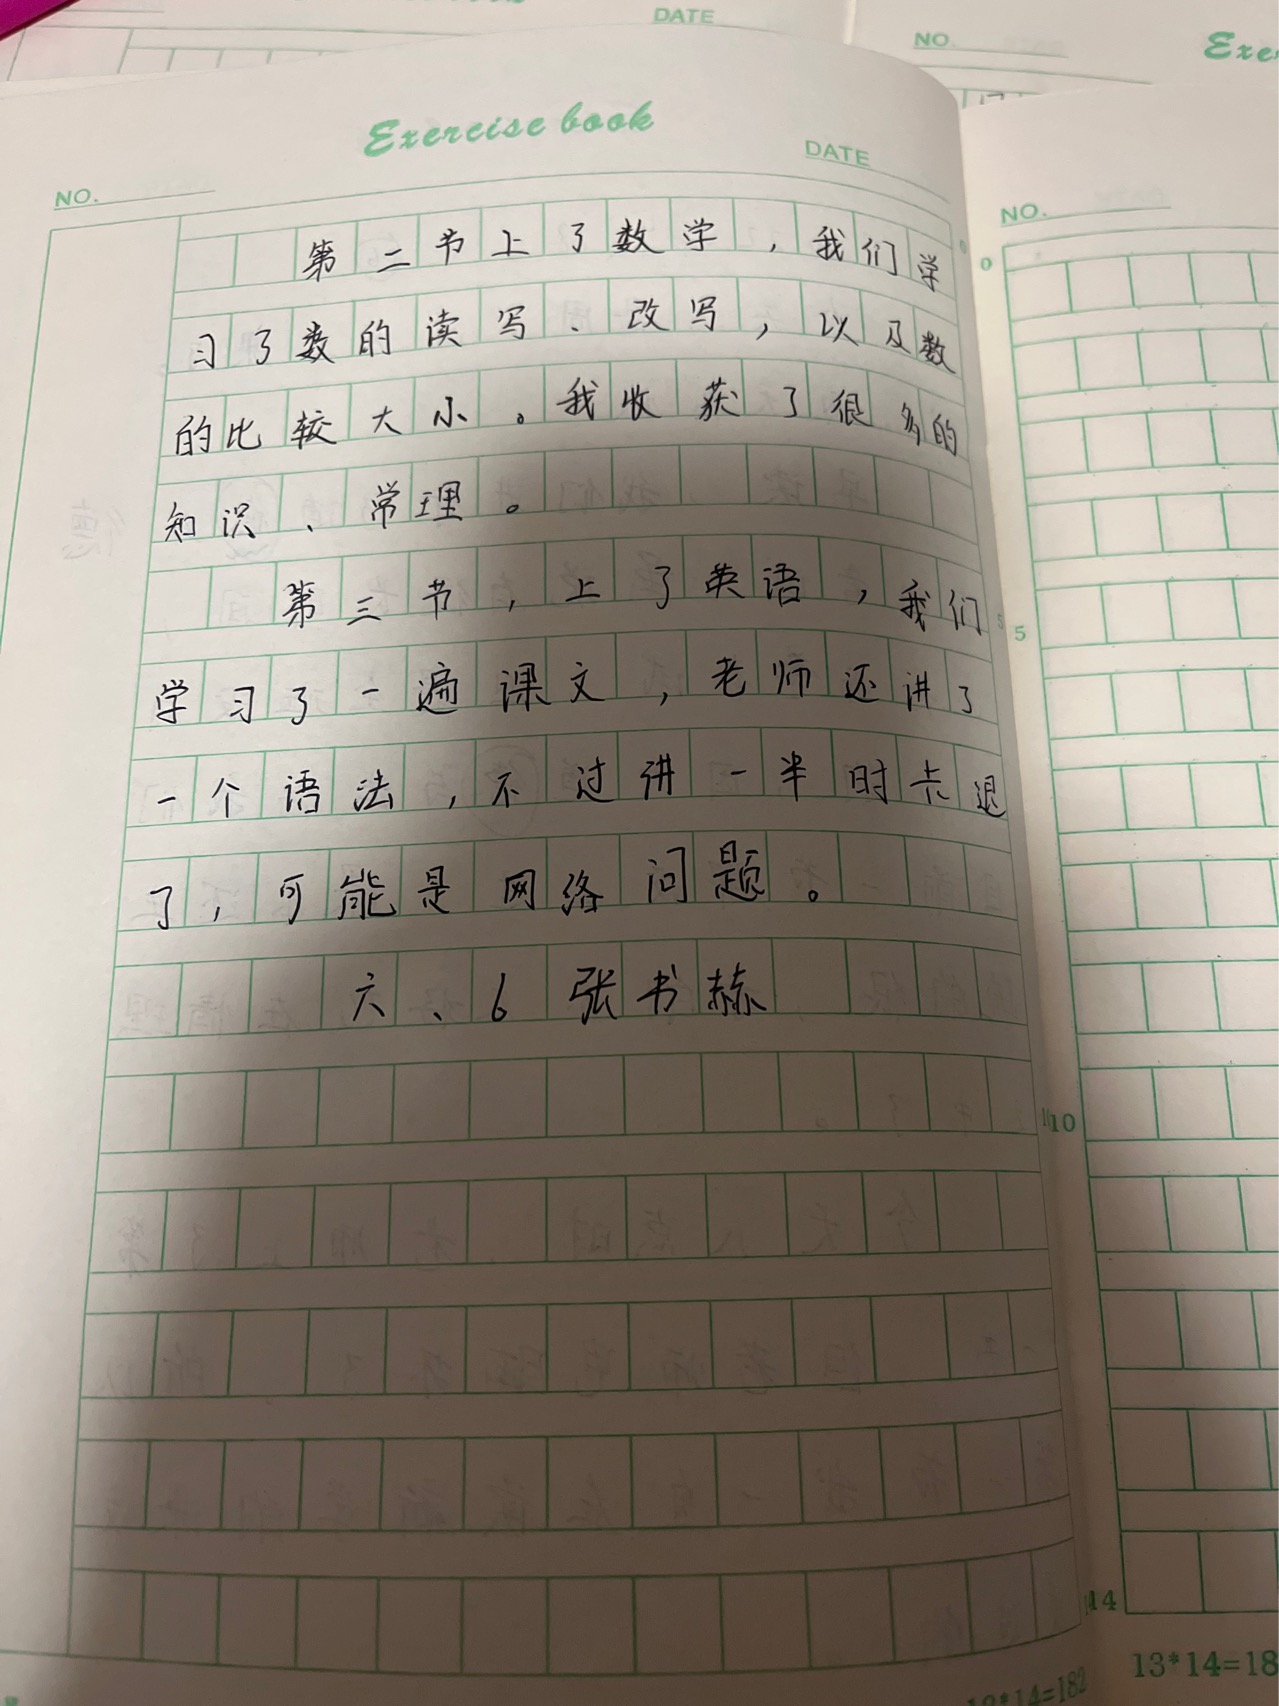 DATE
NO.
Exe
Exercise book
DATE
NO.
第二节上了数学,我们学
习了数的读写、改写,以及数
的比较大小。我收获了很多的
知识、常理。
第三节,上了英语,我们
学习了一遍课文,老师还讲了
一个语法,不过讲一半时卡退
了,可能是网络问题。
六、6 张书赫
NO.
0
5
10
14
13*14=18
13*14=182